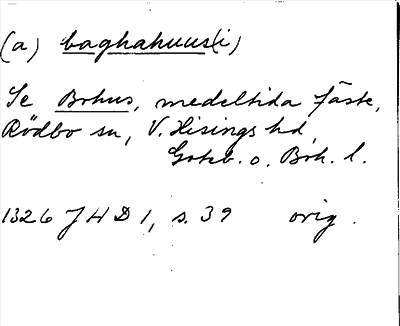 (a) baghahuus(i)
Se Bohus, medeltida fäste,
Rödbo sn, V. Hisings hd,
Göteb. o. Boh. l.
1326 JHD 1, s. 39 orig.